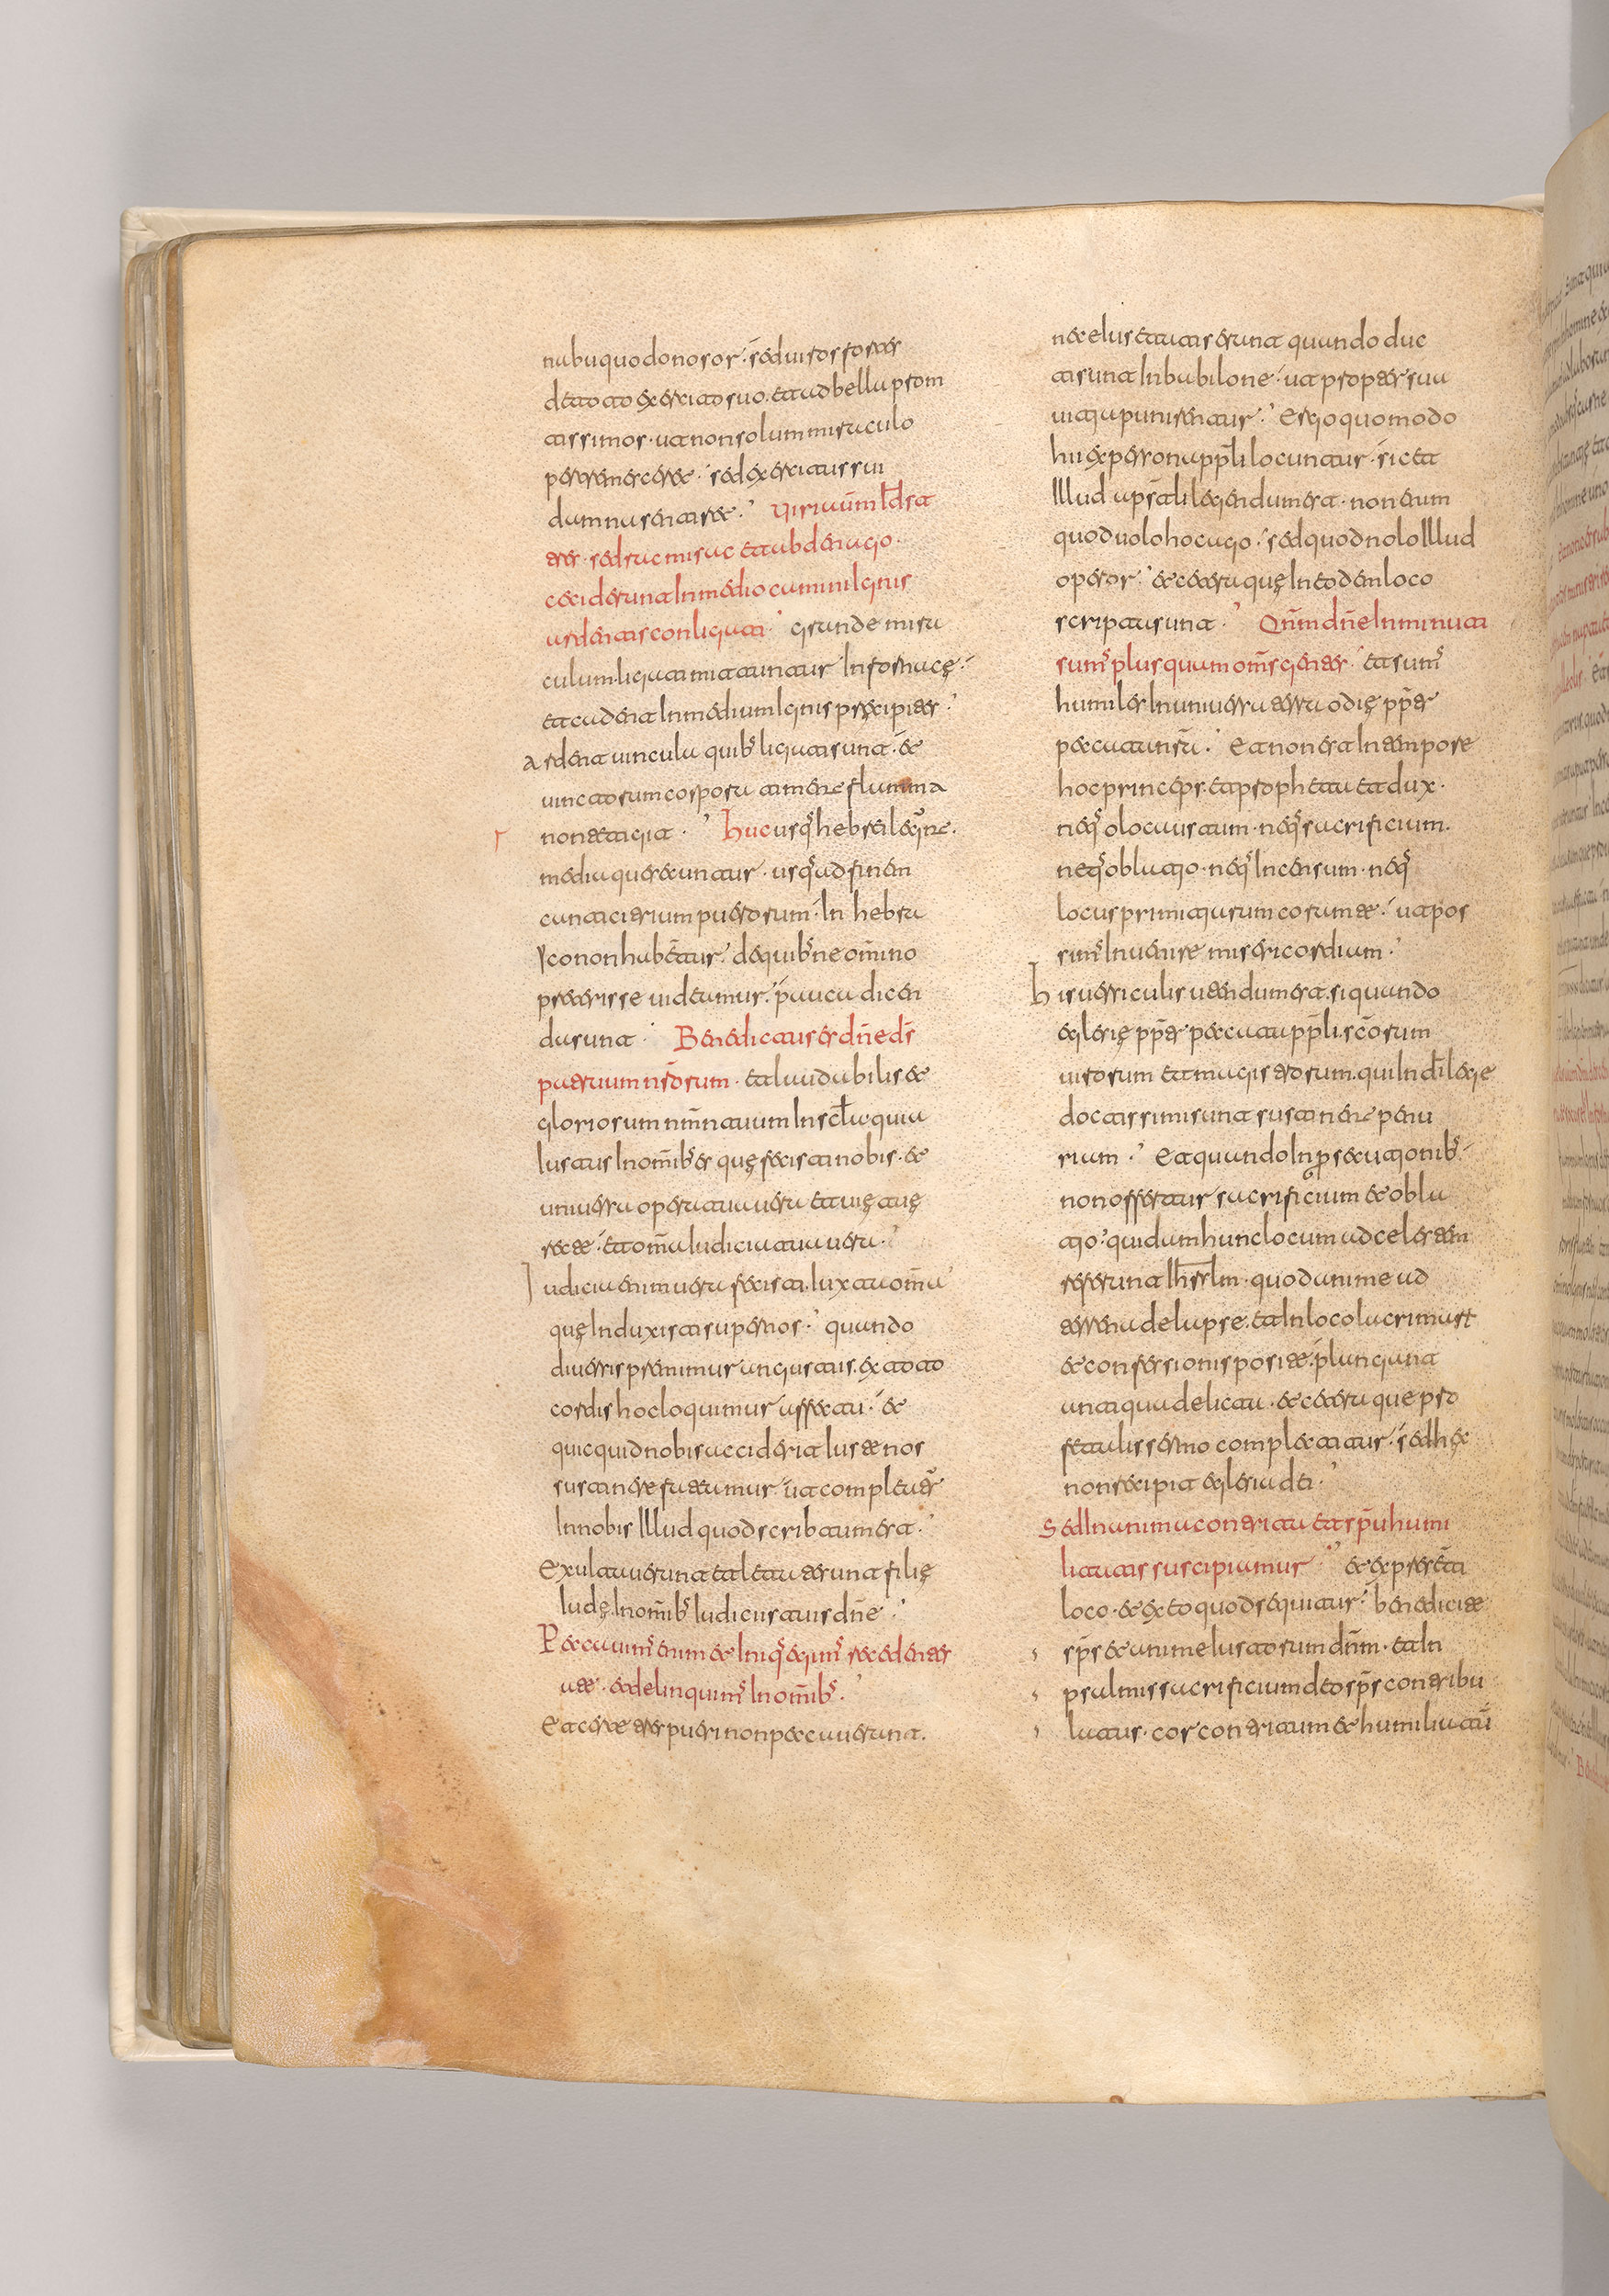 nabuquodonosor. sed uiros fortes
de toto exercito suo. et ad bella prom
tissimos. ut non solum miraculo
perterrerentur. sed exercitus sui
damna sentiret. Viri aūm
tres. sedrac misac et abdenago.
ceciderunt In medio camini Ignis
ardentis conligati. Grande mira
culum. ligati mittuntur In fornacę.
et cadent In medium Ignis pręcipites.
Ardent uincula quibꝰ ligati sunt. et
uinctorum corpora timens flamma
non attigit. Hucusqꝫ hebrei legunt.
media quę secuntur. usqꝫ ad finem
cantici trium puerorum. In hebra
yco non habētur. de quibꝰ ne omīno
preterisse uideamur. pauca dicen
da sunt. Benedictus es dn̄e ds̄
patrum nr̄orum. et laudabilis et
gloriosum nm̄ tuum In scl̄a quia
Iustus In om̄ibꝰ es quę fecisti nobis. et
uniuersa opera tua uera et uię tuę
rectę. et om̄a Iudicia tua uera.
Iudicia enim uera fecisti. Iuxta om̄a
quę Induxisti super nos. quando
diuersis premimur angustiis. ex toto
cordis hoc loquimur affectu. et
quicquid nobis acciderit Iuste nos
sustinere fateamur. ut compleatur
In nobis Illud quod scribtum est.
Exultauerunt et letatę sunt filię
Iudę. In om̄ibꝰ Iudiciis tuis dn̄e.
Peccauimꝰ enim et Iniqꝫ egimꝰ recedentes
a te. et delinquimꝰ In om̄ibꝰ.
Et certe tres pueri non peccauerunt.
nec eius ętatis erant quando duc
ti sunt In babilone. ut propter sua
uitia punirentur. Ergo quomodo
hi ex persona ppl̄i locuntur. sic et
Illud apsl̄i legendum est. non enim
quod uolo hoc ago. sed quod nolo Illud
operor. et cetera quę In eodem loco
scripta sunt. Qnm̄ dn̄e Inminuti
sumꝰ plus quam om̄s gentes. et sumꝰ
humiles In uniuersa terra odię pp̄ter
peccata nr̄a. Et non est In tempore
hoc princeps. et propheta et dux.
neqꝫ olocaustum. neqꝫ sacrificium.
neqꝫ oblatio. neqꝫ Incensum. neqꝫ
locus primitiarum coram te. ut pos
simꝰ Inuenire misericordiam.
His uersiculis utendum est. si quando
eglesię pp̄ter peccata ppl̄i. sc̄orum
uirorum et magistrorum. qui In dī lege
doctissimi sunt sustinere penu
rium. Et quando In ꝑsecutionibꝰ.
non offertur sacrificium et obla
tio. quidam hunc locum ad celestem
referunt Ihrl̄m. quod anime ad
terrena delapse. et In loco lacrimarū
et confersionis positę. plangunt
antiqua delicta. et cetera quę pro
fetalis sermo complectitur. sed hęc
non recipit eglesia dei.
Sed In anima contrita et spū humi
liatus suscipiamur. et ex presenti
loco. et ex eo quod sequitur. benedicite
sps̄ et anime Iustorum dn̄m. et In
psalmis sacrificium deo sps̄ contribu
latus. cor contritum et humiliatū